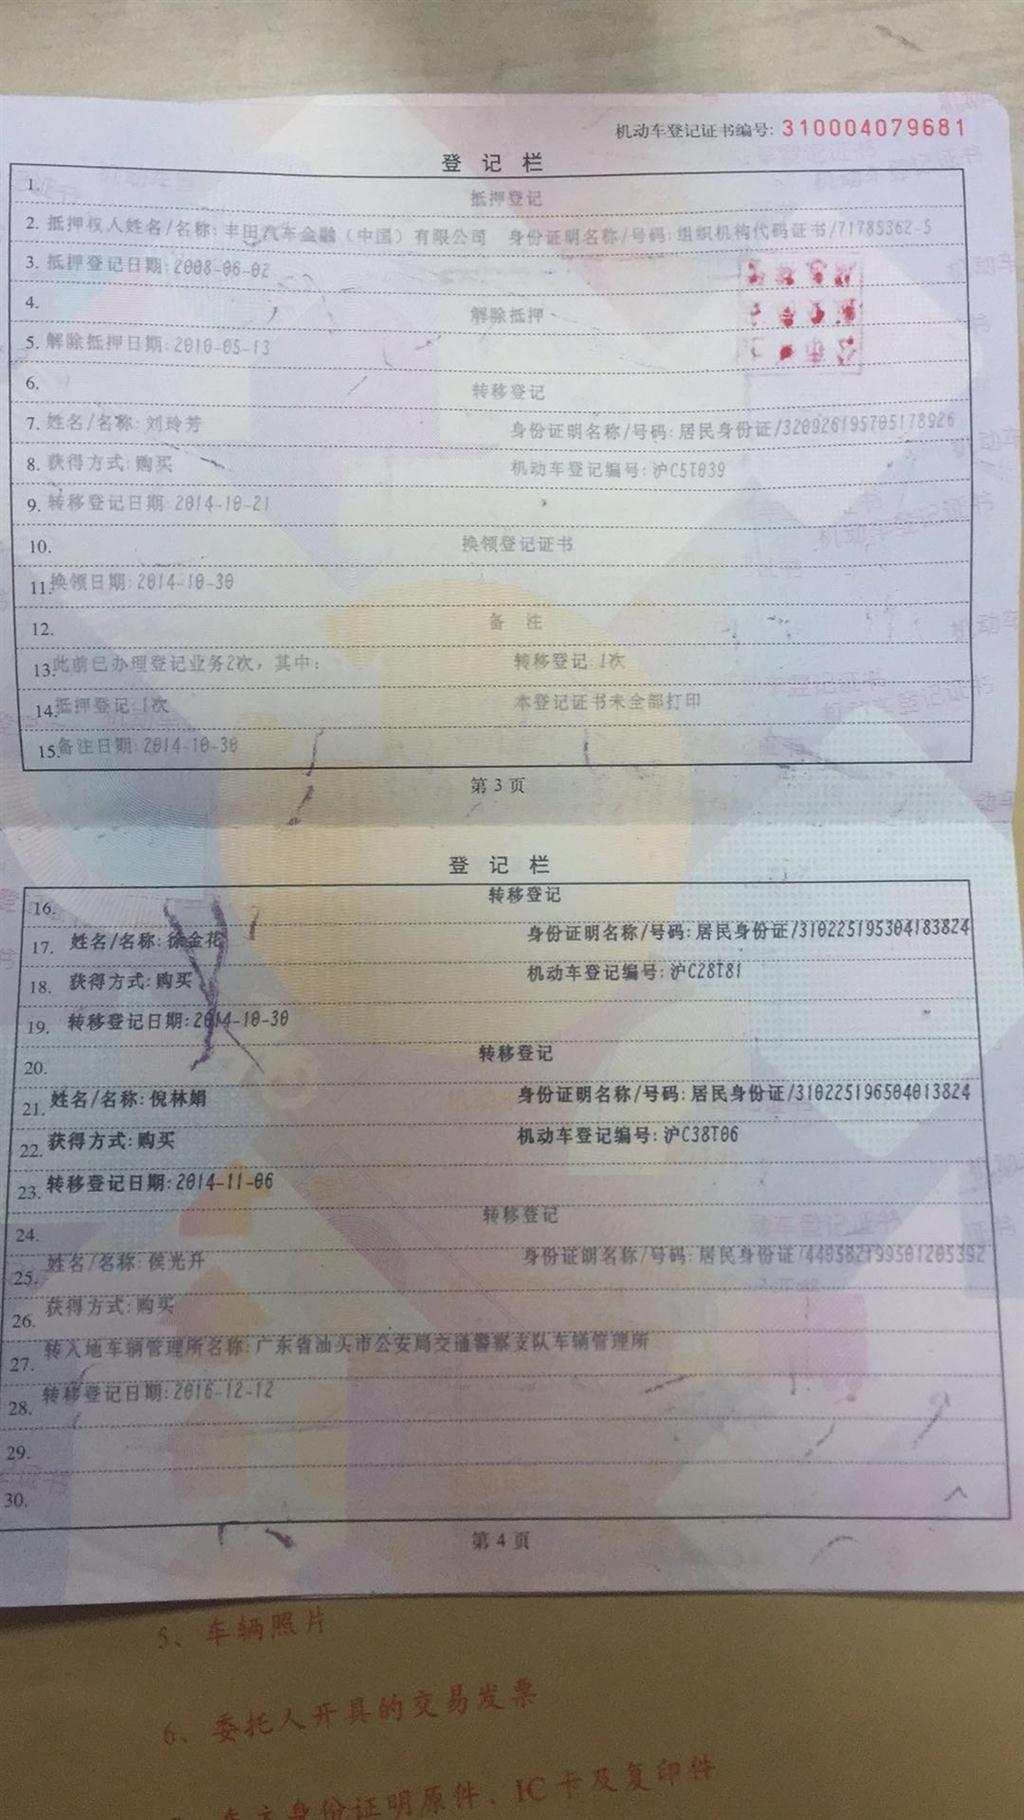 机动车登记证书编号: 310004079681
登 记 栏
1. 抵押登记
2. 抵押权人姓名/名称: 丰田汽车金融（中国）有限公司 身份证明名称/号码: 组织机构代码证书/71785362-5
3. 抵押登记日期: 2008-06-02
4. 解除抵押
5. 解除抵押日期: 2010-05-13
6. 转移登记
7. 姓名/名称: 刘玲芳 身份证明名称/号码: 居民身份证/320926195705178926
8. 获得方式: 购买 机动车登记编号: 沪C5T039
9. 转移登记日期: 2014-10-21
10. 换领登记证书
11. 换领日期: 2014-10-30
12. 备 注
13. 此前已办理登记业务2次，其中: 转移登记 1次
14. 抵押登记 1次 本登记证书未全部打印
15. 备注日期: 2014-10-30
第 3 页
登 记 栏
16. 转移登记
17. 姓名/名称: 徐金花 身份证明名称/号码: 居民身份证/310225195304183824
18. 获得方式: 购买 机动车登记编号: 沪C28T81
19. 转移登记日期: 2014-10-30
20. 转移登记
21. 姓名/名称: 倪林娟 身份证明名称/号码: 居民身份证/310225196504013824
22. 获得方式: 购买 机动车登记编号: 沪C38T06
23. 转移登记日期: 2014-11-06
24. 转移登记
25. 姓名/名称: 侯光升 身份证明名称/号码: 居民身份证/440582199501205392
26. 获得方式: 购买
27. 转入地车辆管理所名称: 广东省汕头市公安局交通警察支队车辆管理所
28. 转移登记日期: 2016-12-12
29.
30.
第 4 页
5、车辆照片
6、委托人开具的交易发票
车主身份证明原件、IC卡及复印件